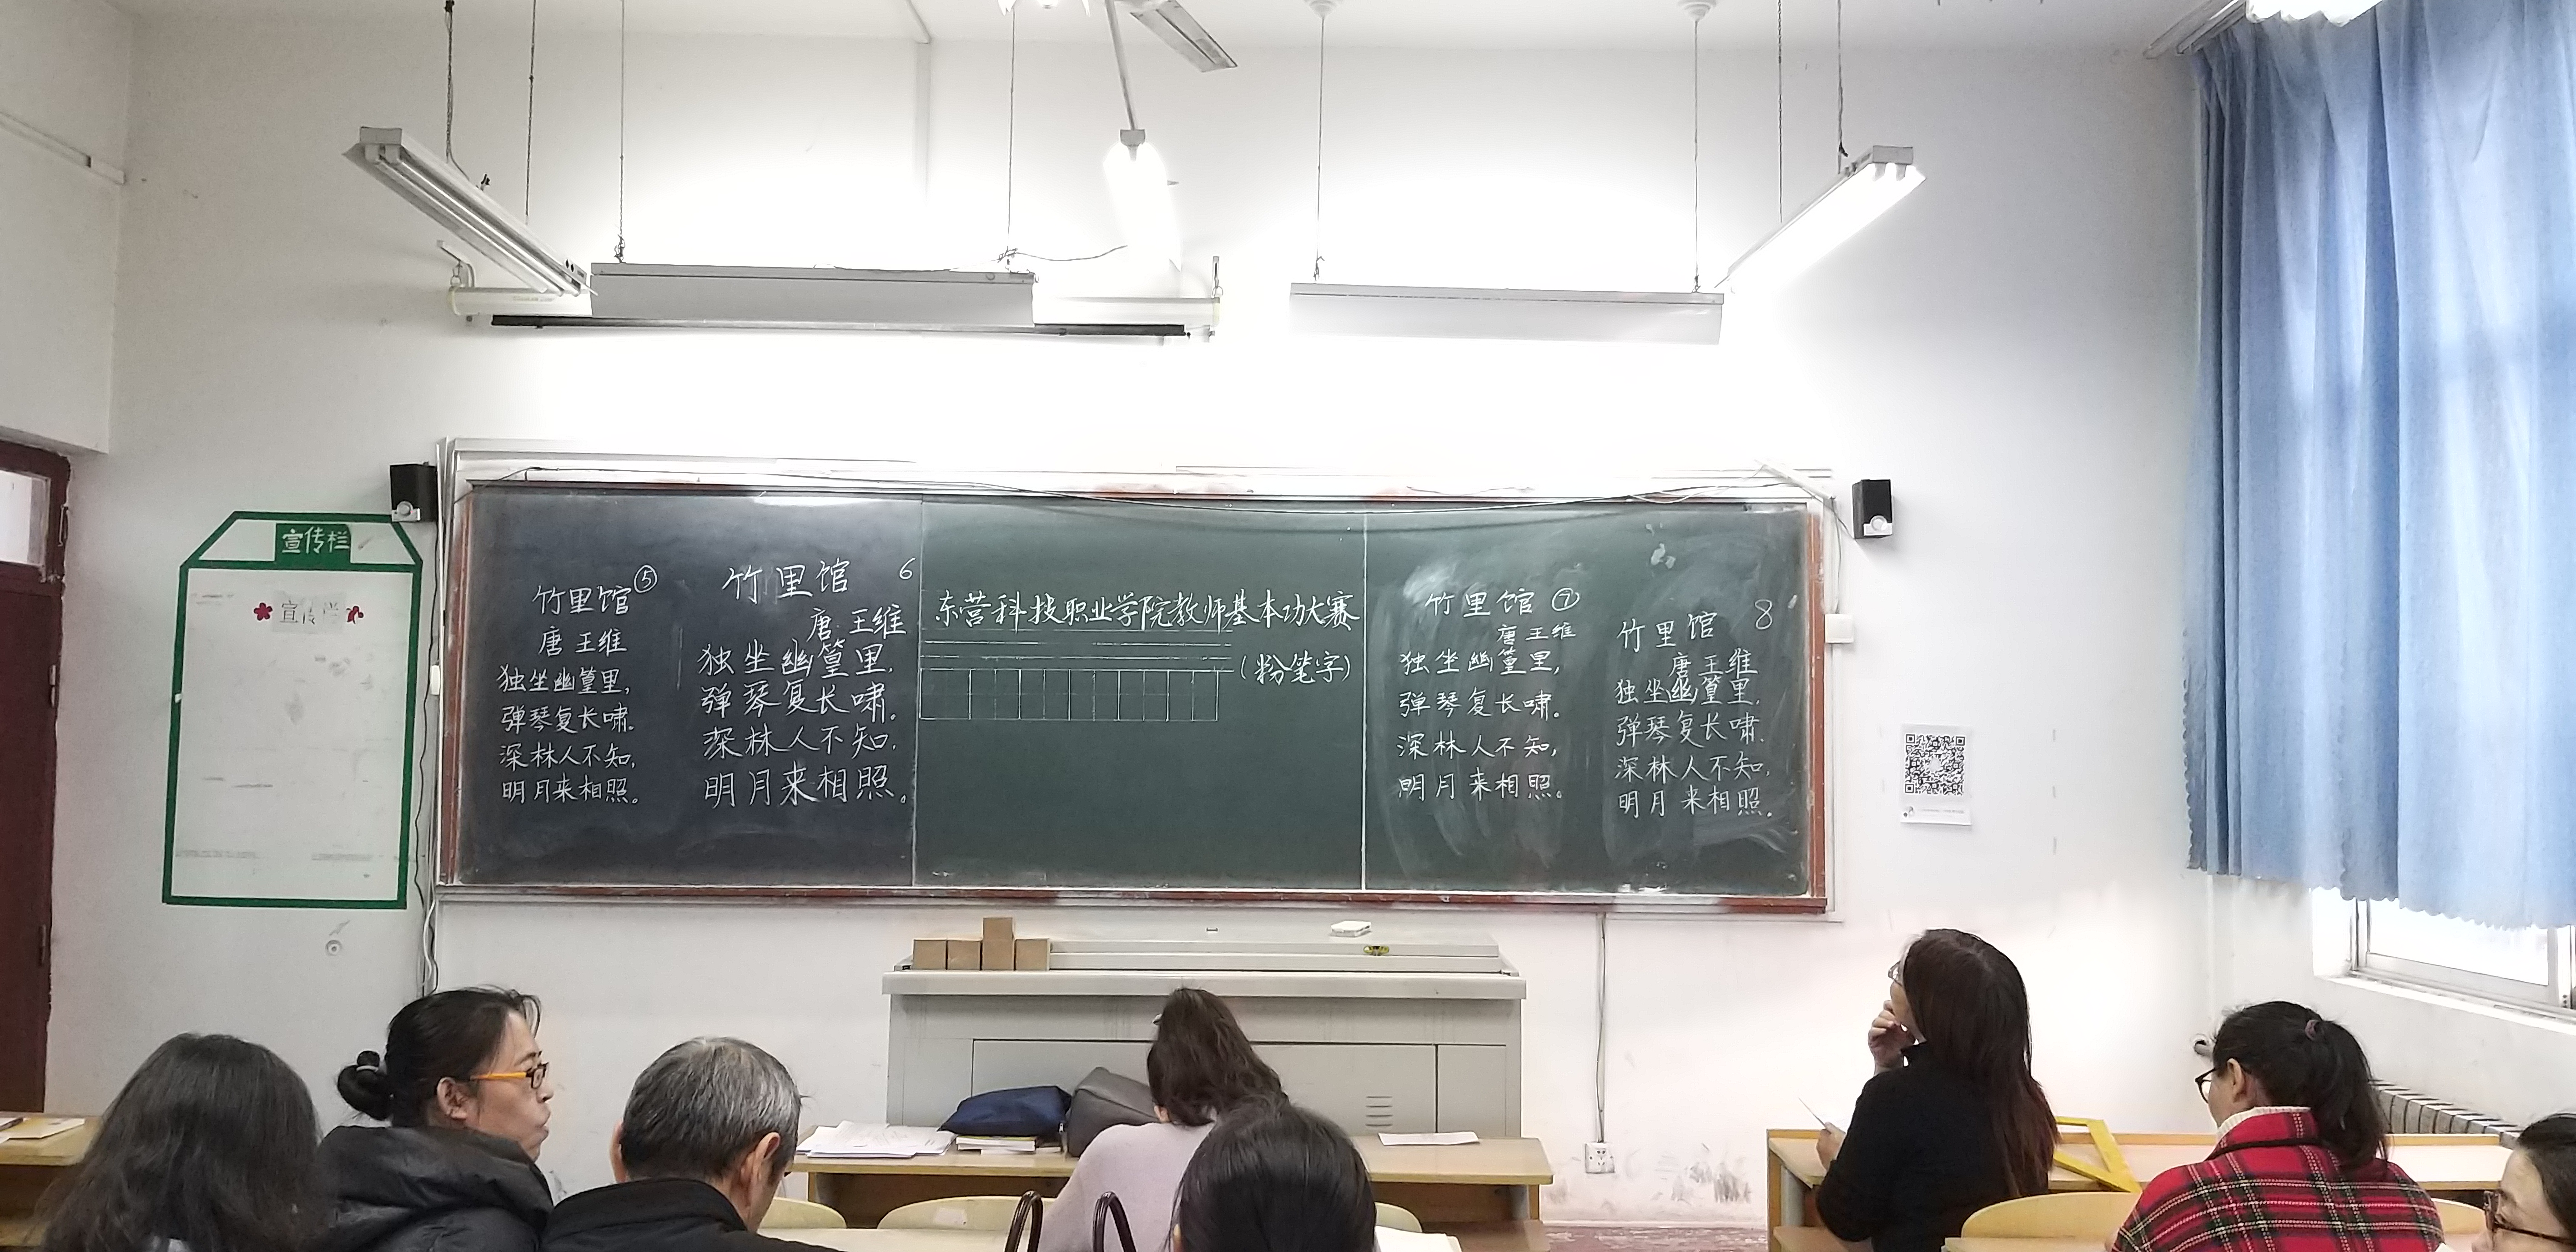 宣传栏
宣传栏
竹里馆⑤
唐 王维
独坐幽篁里，
弹琴复长啸。
深林人不知，
明月来相照。
竹里馆 6
唐·王维
独坐幽篁里，
弹琴复长啸。
深林人不知，
明月来相照。
东营科技职业学院教师基本功大赛
（粉笔字）
竹里馆 ⑦
唐 王维
独坐幽篁里，
弹琴复长啸。
深林人不知，
明月来相照。
竹里馆 8
唐 王维
独坐幽篁里，
弹琴复长啸。
深林人不知，
明月来相照。